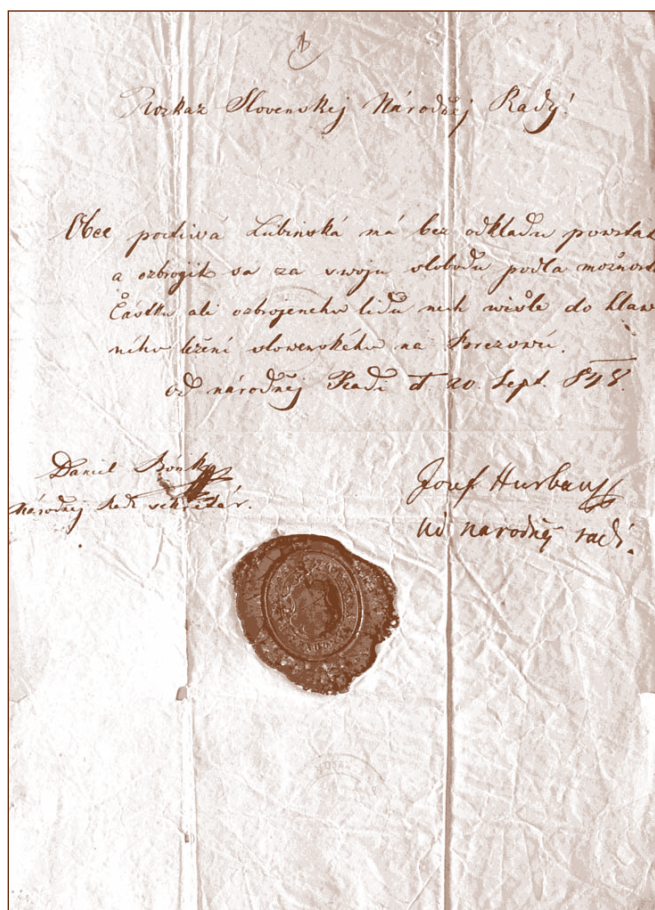 Rozkaz Slovenskej Národnej Rady!
Obec poctivá Lubinská má bez odkladu povstát
a ozbrogit sa za svoju slobodu podla možnosti
Částku ali ozbrojeneho lidu nech wišle do hlaw
ného ležení slowenského na Brezowú.
od národnej Radi d 20. Sept. 848.
Daniel
národnej Radi sekretár.
Josef Hurban
ud narodnéj radi.